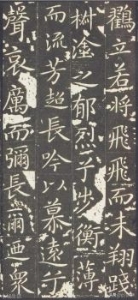 鸖立若將飛飛而未翔踐
椒塗之郁烈兮步衡薄
而流芳超長吟以慕遠兮
聲哀厲而彌長爾迺衆